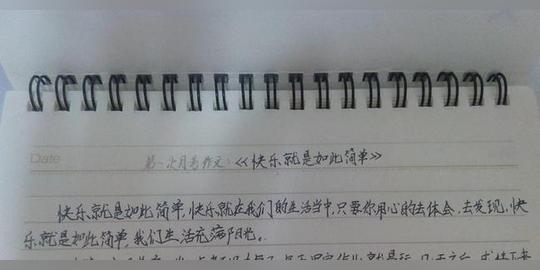 Date
第一次月考作文:《快乐就是如此简单》
快乐就是如此简单,快乐就在我们的生活当中,只要你用心的去体会,去发现,快
乐就是如此简单,我们生活充满阳光。